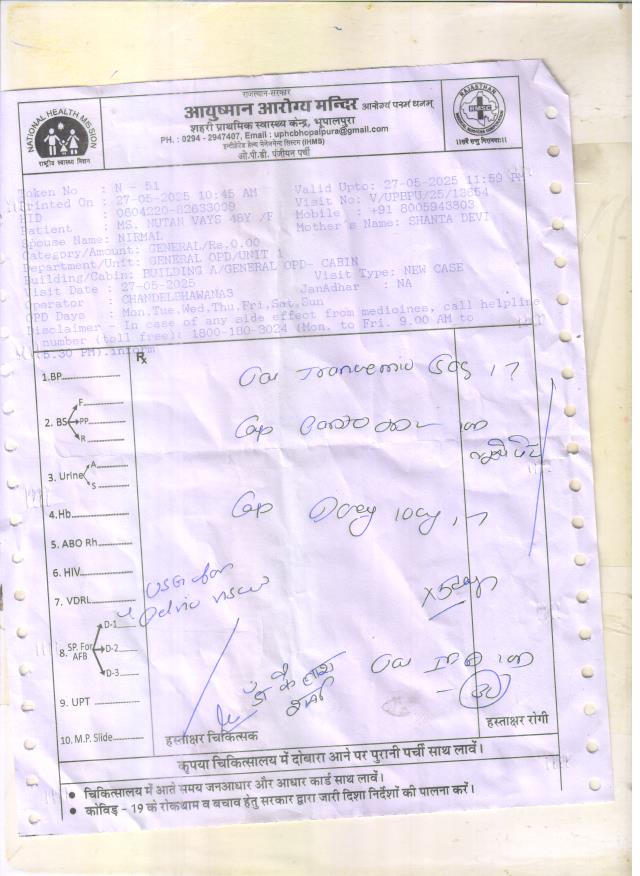 राजस्थान-सरकार
आयुष्मान आरोग्य मन्दिर आरोग्यं परमं धनम्
शहरी प्राथमिक स्वास्थ्य केन्द्र, भूपालपुरा
PH. : 0294 - 2947407, Email : uphcbhopalpura@gmail.com
इन्टीग्रेटेड हेल्थ मेनेजमेन्ट सिस्टम (IHMS)
ओ.पी.डी. पंजीयन पर्ची
NATIONAL HEALTH MISSION
राष्ट्रीय स्वास्थ्य मिशन
RAJASTHAN
Token No : N - 51
Printed On : 27-05-2025 10:45 AM Valid Upto: 27-05-2025 11:59 PM
HID : 0604220-82633009 Visit No: V/UPBPU/25/12654
Patient : MS. NUTAN VAYS 48Y /F Mobile : +91 8005943803
Spouse Name: NIRMAL Mother's Name: SHANTA DEVI
Category/Amount: GENERAL/Rs.0.00
Department/Unit: GENERAL OPD/UNIT 1
Building/Cabin: BUILDING A/GENERAL OPD- CABIN
Visit Date : 27-05-2025 Visit Type: NEW CASE
Operator : CHANDELBHAWANA3 JanAdhar : NA
OPD Days : Mon,Tue,Wed,Thu,Fri,Sat,Sun
Disclaimer - In case of any side effect from medicines, call helpline
number (toll free): 1800-180-3024 (Mon. to Fri. 9.00 AM to
5.30 PM).inform
Rx
1.BP
2. BS F.
PP
R
3. Urine A
S
4.Hb
5. ABO Rh
6. HIV
7. VDRL
8. SP. For AFB D-1
D-2
D-3
9. UPT
10. M.P. Slide
Cap
Cap
USG for
x5days
हस्ताक्षर चिकित्सक
हस्ताक्षर रोगी
कृपया चिकित्सालय में दोबारा आने पर पुरानी पर्ची साथ लावें।
• चिकित्सालय में आते समय जनआधार और आधार कार्ड साथ लावें।
• कोविड़ - 19 के रोकथाम व बचाव हेतु सरकार द्वारा जारी दिशा निर्देशों की पालना करें।